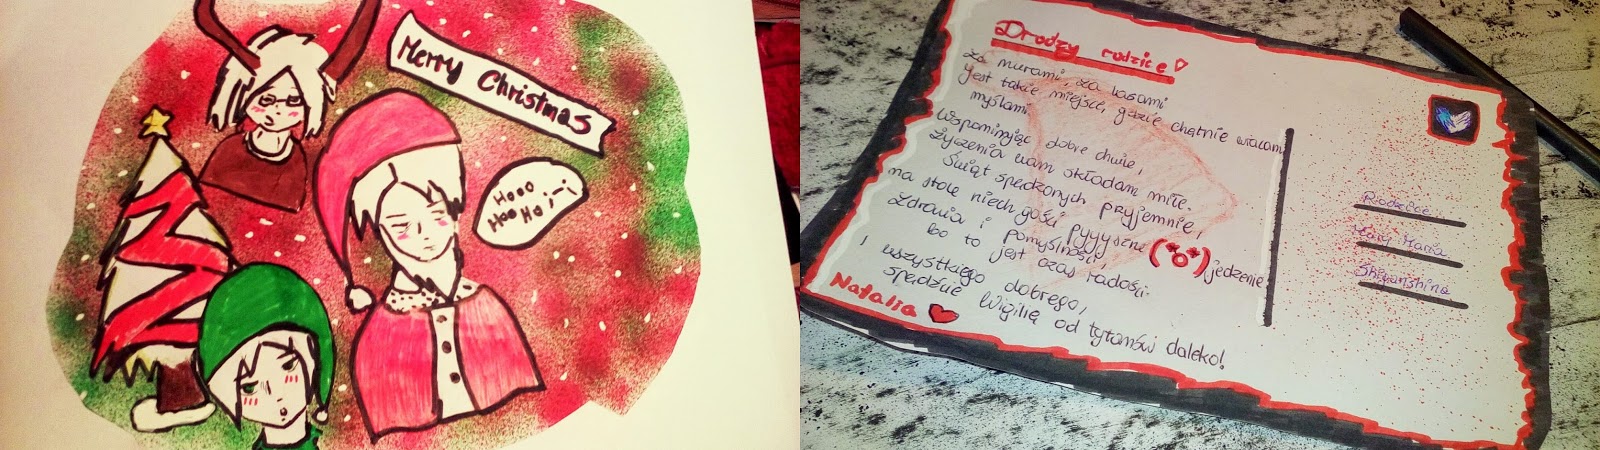 Merry Christmas
Hooo
Hoo Ho ;-;
Drodzy rodzice
Za murami, za lasami
Jest takie miejsce, gdzie chętnie wracam
myślami.
Wspominając dobre chwile,
Życzenia wam składam miłe.
Świąt spędzonych przyjemnie,
na stole niech gości pyyyszne (*o*) jedzenie
Zdrowia i pomyślności
bo to jest czas radości.
I wszystkiego dobrego,
spędźcie Wigilię od tytanów daleko!
Natalia
Rodzice
Maria
Shiganshina